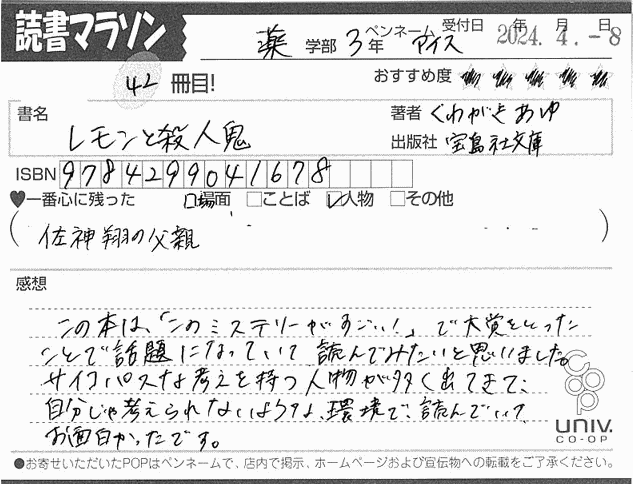 読書マラソン
薬 学部 3年 ペンネーム アイス 受付日 年 月 日 2024. 4. - 8
42 冊目! おすすめ度 ★★★★★
書名 レモンと殺人鬼
著者 くわがきあゆ
出版社 宝島社文庫
ISBN 9784299041678
♥一番心に残った □場面 □ことば ☑人物 □その他
(佐神翔の父親)
感想
この本は、「このミステリーがすごい!」で大賞をとった
ことで話題になっていて読んでみたいと思いました。
サイコパスな考えを持つ人物が多く出てきて、
自分じゃ考えられないような、環境で、読んでいて
お面白かったです。
COOP
UNIV.
CO-OP
●お寄せいただいたPOPはペンネームで、店内で掲示、ホームページおよび宣伝物への転載をご了承ください。